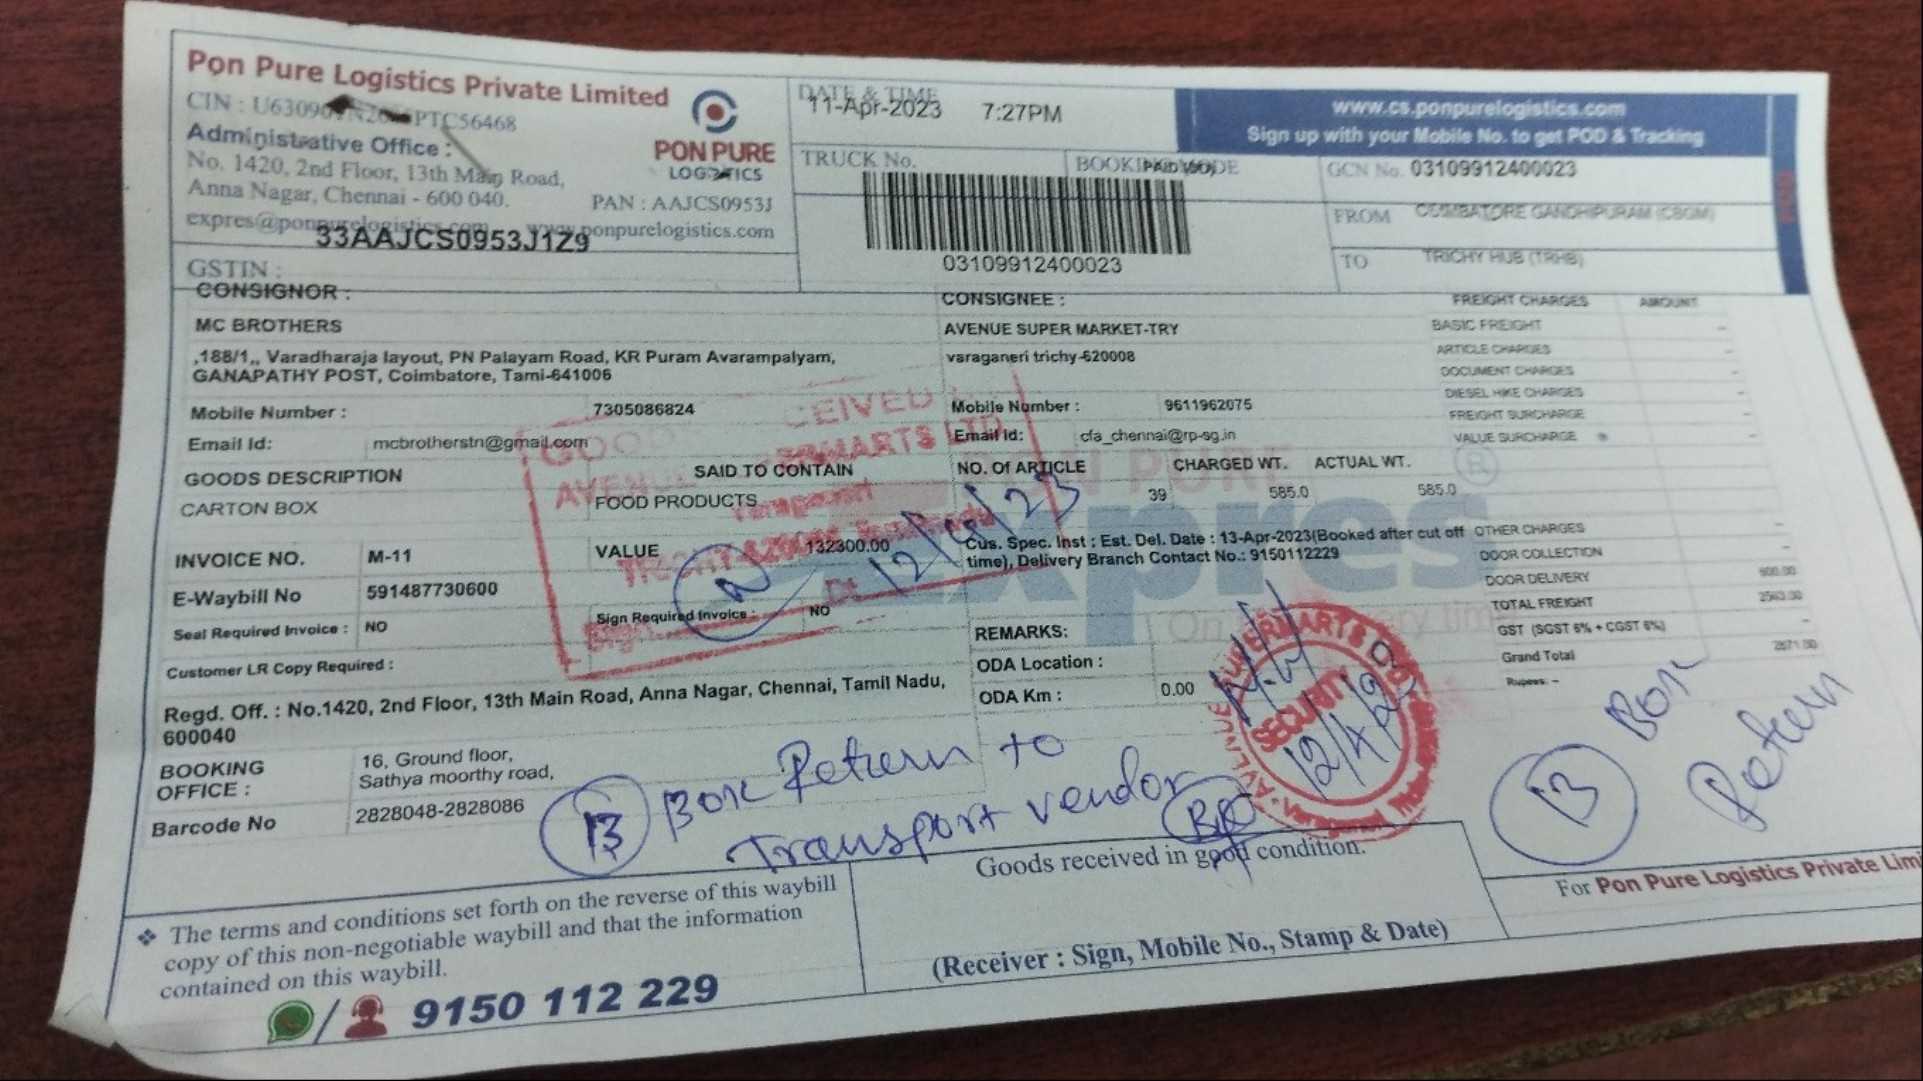 Pon Pure Logistics Private Limited
Administrative Office :
No. 1420, 2nd Floor, 13th Main Road,
Anna Nagar, Chennai - 600 040.
PAN : AAJCS0953J
www.ponpurelogistics.com
33AAJCS0953J1Z9
GSTIN :
PON PURE
LOGISTICS
DATE & TIME
11-Apr-2023 7:27PM
TRUCK No.
03109912400023
www.cs.ponpurelogistics.com
Sign up with your Mobile No. to get POD & Tracking
GCN No. 03109912400023
FROM COIMBATORE GANDHIPURAM (CBGM)
TO TRICHY HUB (TRHB)
CONSIGNOR :
MC BROTHERS
,188/1,, Varadharaja layout, PN Palayam Road, KR Puram Avarampalyam,
GANAPATHY POST, Coimbatore, Tami-641006
Mobile Number : 7305086824
Email Id: mcbrotherstn@gmail.com
CONSIGNEE :
AVENUE SUPER MARKET-TRY
varaganeri trichy-620008
Mobile Number : 9611962075
Email Id: cfa_chennai@rp-sg.in
FREIGHT CHARGES AMOUNT
BASIC FREIGHT
ARTICLE CHARGES
DOCUMENT CHARGES
DIESEL HIKE CHARGES
FREIGHT SURCHARGE
VALUE SURCHARGE
GOODS DESCRIPTION SAID TO CONTAIN NO. Of ARTICLE CHARGED WT. ACTUAL WT.
CARTON BOX FOOD PRODUCTS 39 585.0 585.0
INVOICE NO. M-11 VALUE 132300.00
Cus. Spec. Inst : Est. Del. Date : 13-Apr-2023(Booked after cut off
time), Delivery Branch Contact No.: 9150112229
E-Waybill No 591487730600
Seal Required Invoice : NO Sign Required Invoice : NO
Customer LR Copy Required :
REMARKS:
ODA Location :
ODA Km : 0.00
OTHER CHARGES
DOOR COLLECTION
DOOR DELIVERY 600.00
TOTAL FREIGHT 2563.00
GST (SGST 6% + CGST 6%)
Grand Total 2871.00
Rupees: -
Regd. Off. : No.1420, 2nd Floor, 13th Main Road, Anna Nagar, Chennai, Tamil Nadu,
600040
BOOKING
OFFICE :
16, Ground floor,
Sathya moorthy road,
Barcode No 2828048-2828086
13 Box Return to
Transport vendor
13 Box
Return
SECURITY
Goods received in good condition.
(Receiver : Sign, Mobile No., Stamp & Date)
For Pon Pure Logistics Private Limi
❖ The terms and conditions set forth on the reverse of this waybill
copy of this non-negotiable waybill and that the information
contained on this waybill.
9150 112 229